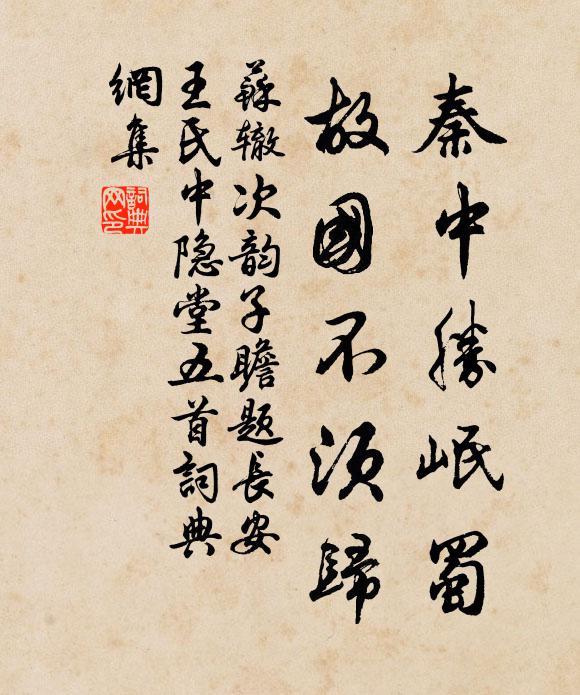 秦中勝岷蜀
故國不須歸
蘇辙次韵子瞻題長安
王氏中隐堂五首詞典
網集
詞典
网印